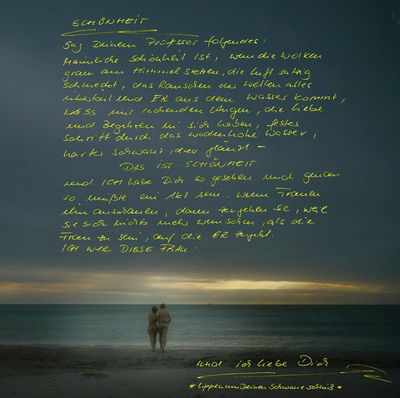 SCHÖNHEIT
Sag Deinem Professor folgendes:
Männliche Schönheit ist, wenn die Wolken
grau am Himmel stehen, die Luft salzig
schmeckt, das Rauschen der Wellen alles
übertönt und ER aus dem Wasser kommt,
nass mit lachenden Augen, die Liebe
und Begehren in sich haben, festes
Schritt durch das wadenhohe Wasser,
harter Schwanz, der glänzt –
DAS IST SCHÖNHEIT
und ICH habe Dich so gesehen und genau
so müßte ein Akt sein. Wenn Frauen
ihn anschauen, dann zergehen sie, weil
sie sich nichts mehr wünschen, als die
Frau zu sein, auf die ER zugeht.
ICH WAR DIESE FRAU.
und ich liebe Dich
*Lippen um Deinen Schwanz schließ*